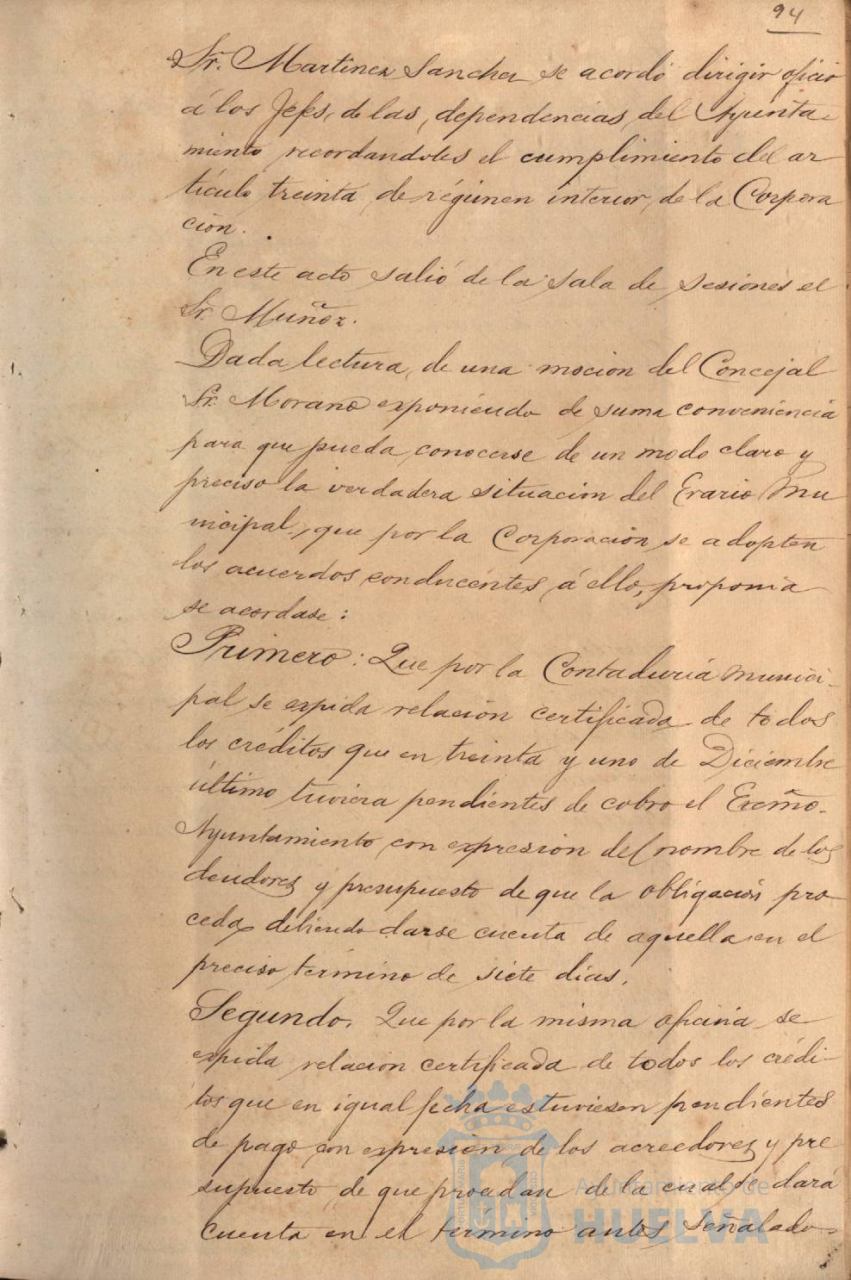 94
Sr. Martinez Sanchez se acordó dirigir oficio
á los Jefes, de las, dependencias, del Ayunta-
miento recordandoles el cumplimiento del ar
tículo treinta, de régimen interior, de la Corpora
cion.
En este acto salió de la sala de sesiones el
Sr. Muñoz.
Dada lectura, de una mocion del Concejal
Sr. Morano exponiendo de suma conveniencia
para que pueda conocerse de un modo claro y
preciso la verdadera situacion del Erario Mu
nicipal, que por la Corporación se adopten
los acuerdos conducentes, á ello, proponia
se acordase:
Primero: Que por la Contaduria munici-
pal, se expida relación certificada de todos
los créditos que en treinta y uno de Diciembre
último tuviera pendientes de cobro el Excmo.
Ayuntamiento, con expresión del nombre de los
deudores y presupuesto de que la obligación pro
ceda, debiendo darse cuenta de aquella en el
preciso termino de siete dias.
Segundo. Que por la misma oficina se
expida relacion certificada de todos los crédi-
tos que en igual fecha estuviesen pendientes
de pago con expresión de los acreedores y pre
supuesto de que procedan de la cual se dará
cuenta en el termino antes señalado.
Ayuntamiento de
HUELVA